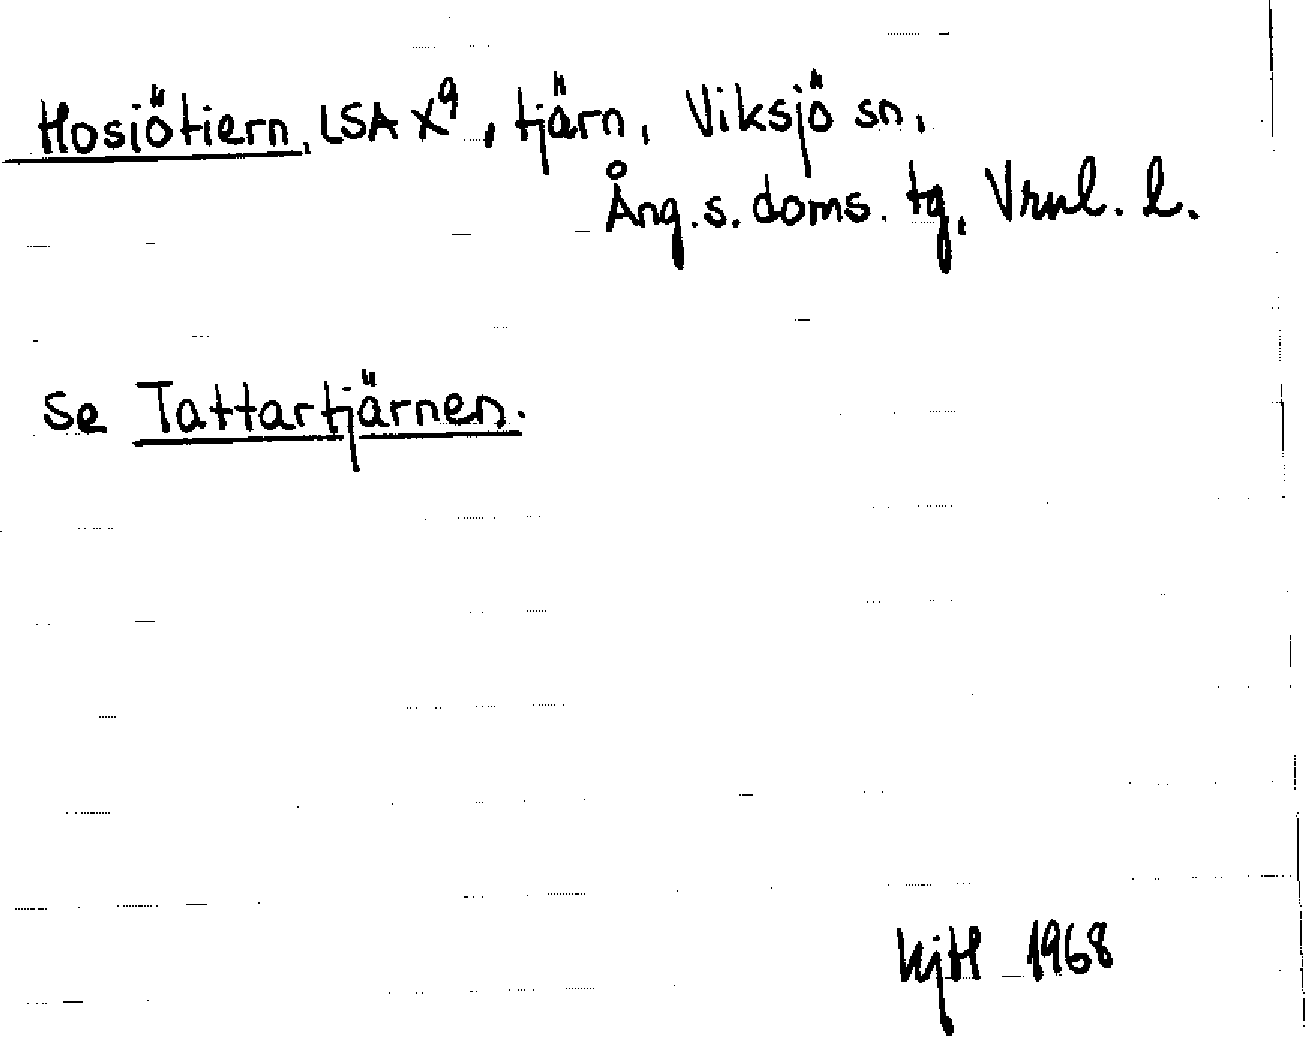 Hosiötiern, LSA X⁹, tjärn, Viksjö sn,
Ång. s. doms. tg, Vrnl. l.
se Tattartjärnen.
KjH 1968